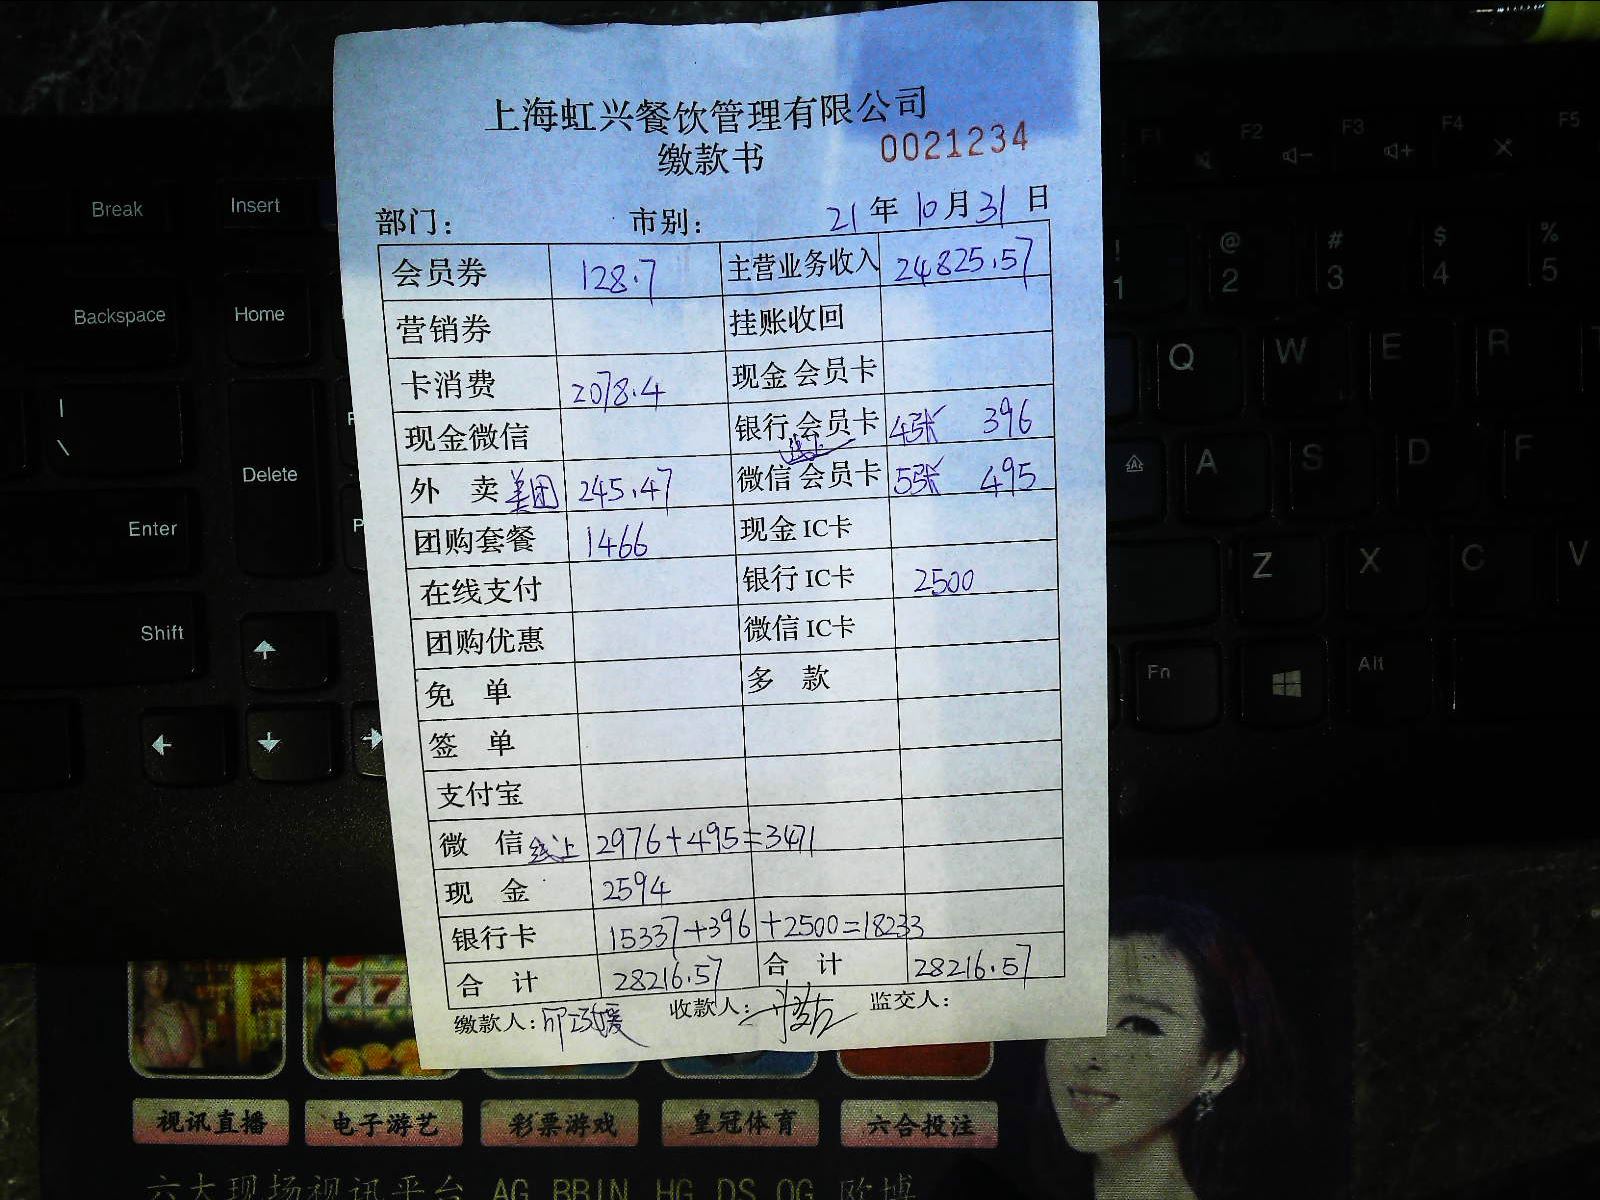 上海虹兴餐饮管理有限公司
缴款书 0021234
部门： 市别： 21 年 10 月 31 日
会员券 128.7 主营业务收入 24825.57
营销券 挂账收回
卡消费 2078.4 现金 会员卡
现金微信 银行 会员卡 4张 396
线上
外 卖 美团 245.47 微信 会员卡 5张 495
团购套餐 1466 现金 IC卡
在线支付 银行 IC卡 2500
团购优惠 微信 IC卡
免 单 多 款
签 单
支付宝
微 信 线上 2976+495=3471
现 金 2594
银行卡 15337+396+2500=18233
合 计 28216.57 合 计 28216.57
缴款人： 收款人： 监交人：
Break
Insert
Backspace
Home
|
\
Delete
Enter
Shift
F1
F2
F3
F4
F5
!
1
@
2
#
3
$
4
%
5
Q
W
E
R
A
S
D
F
Z
X
C
V
Fn
Alt
视讯直播 电子游艺 彩票游戏 皇冠体育 六合投注
六大现场视讯平台 AG BBIN HG DS OG 欧博